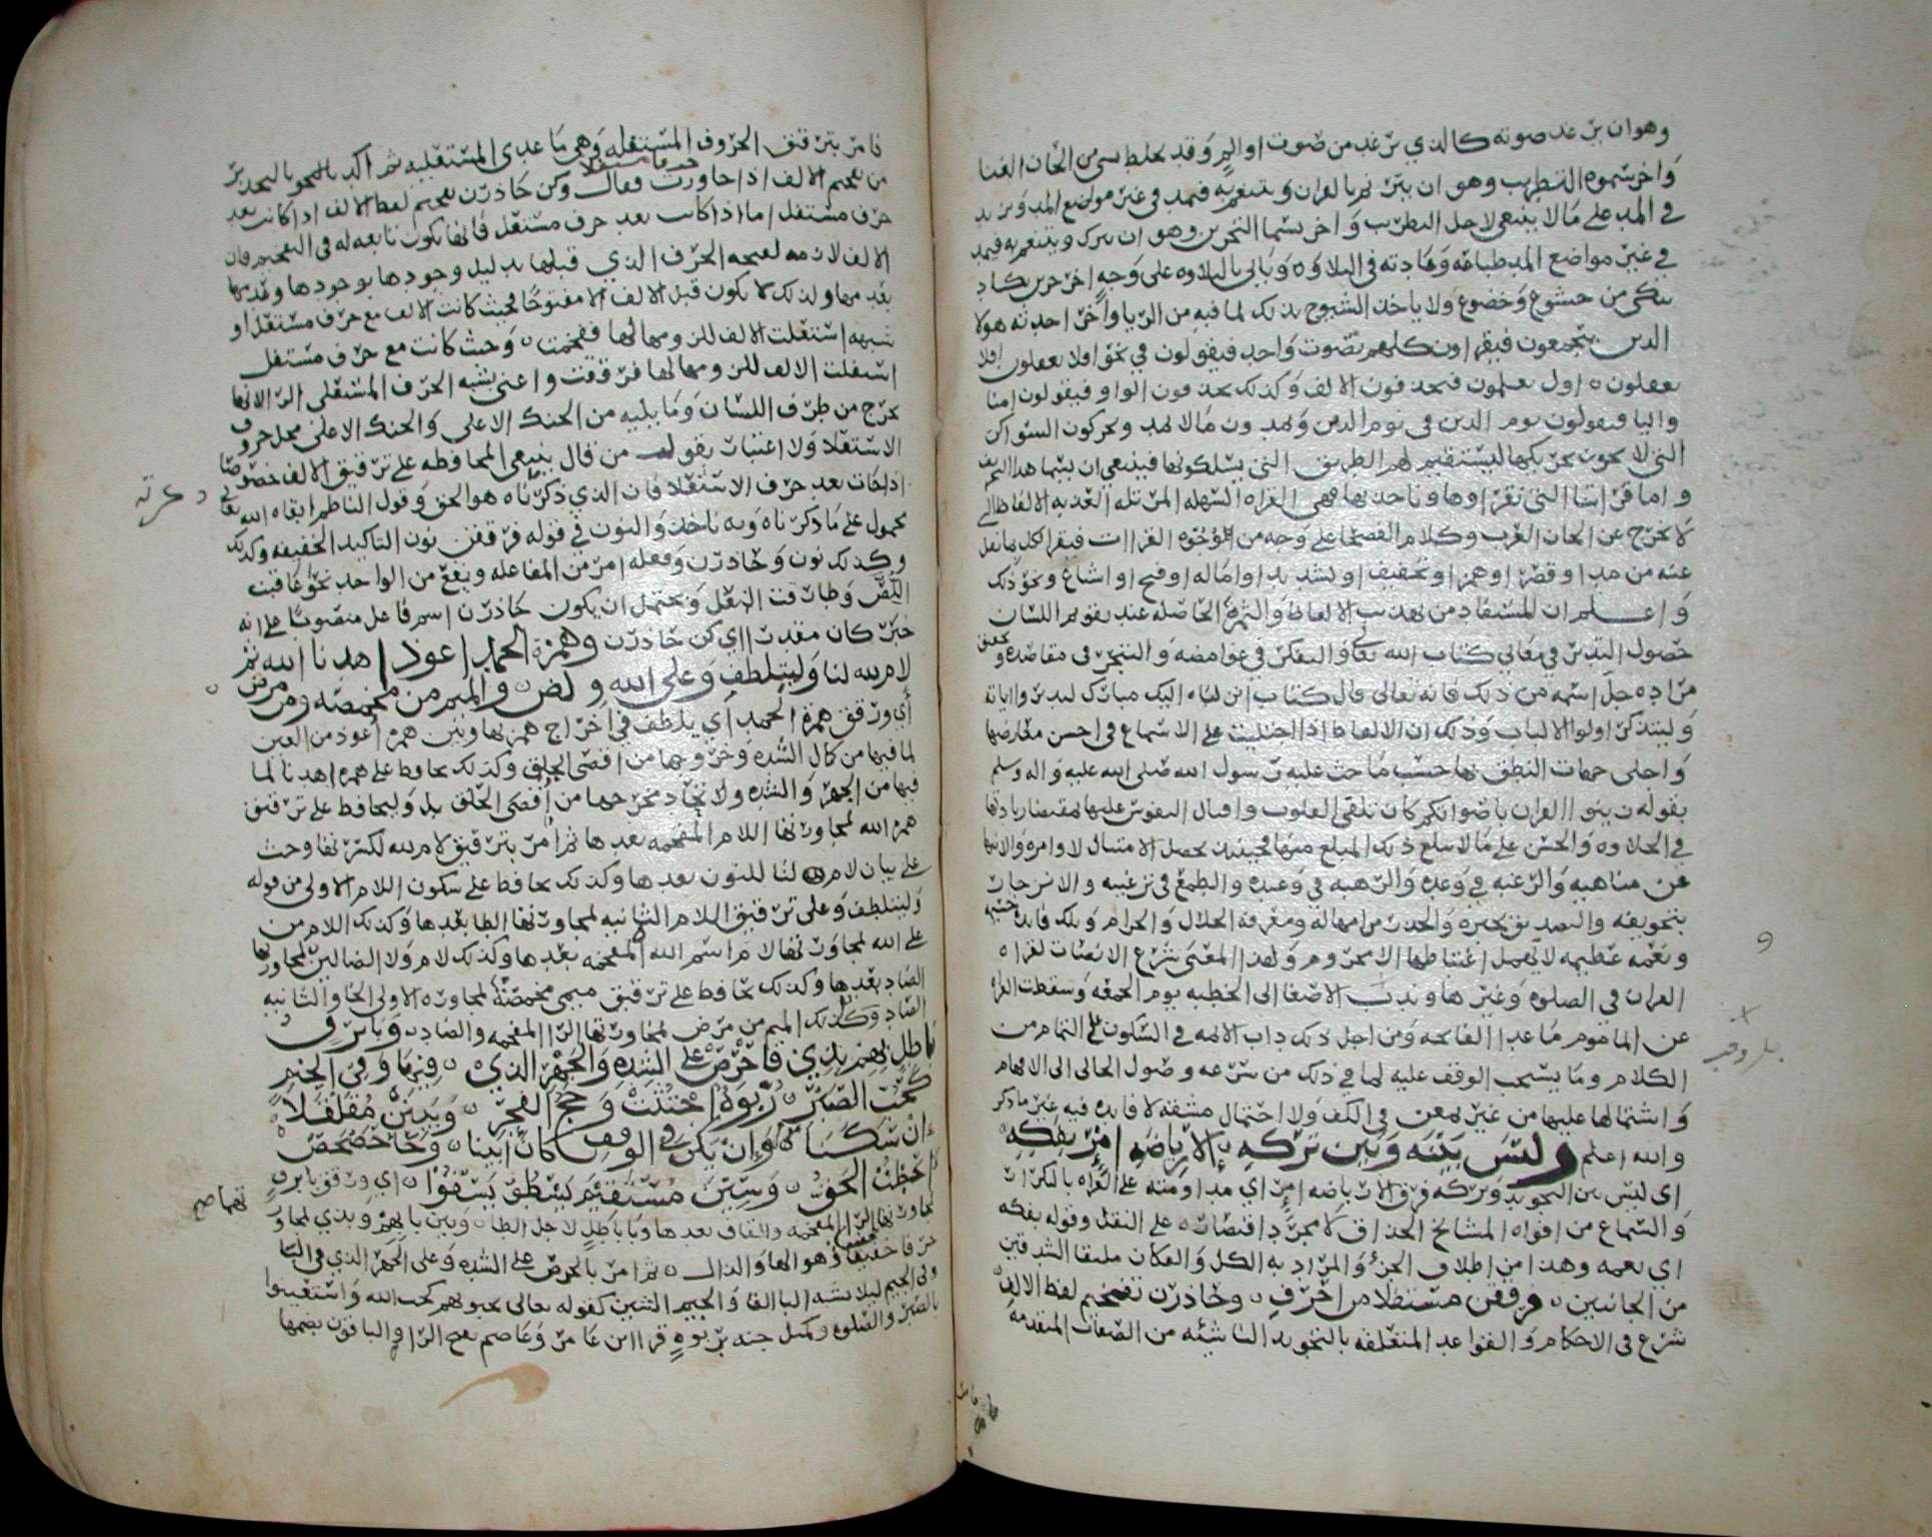 وهو ان يرعد صوته كالذي يرعد من صوت او الم وقد يخلط بشي من الحان الغنا
واخر سموه التطريب وهو ان يترنم بالقران ويتنغم به فيمد في غير مواضع المد ويزيد
في المد على ما لا ينبغي لاجل التطريب واخر يسما التحزين وهو ان يترك
في غير مواضع المد طباعه وعادته في التلاوه وياتي بالتلاوه على وجه اخر حزين يكاد
يبكي من خشوع وخضوع ولا ياخذ الشيوخ بذلك لما فيه من الريا واخر احدثه هولا
الذين يجتمعون فيقراون كلهم بصوت واحد فيقولون في نحو افلا يعقلون افلا
يعقلون اول يعلمون فيحذفون الالف وكذلك يحذفون الواو فيقولون امنا
واليا فيقولون يوم الدين في يوم الدين ويمدون ما لا يمد ويحركون السواكن
التي لا يجوز تحريكها ليستقيم لهم الطريق التي يسلكونها فينبغي ان يسما هذا التحريف
واما قراتنا التي نقراوها وناخذ بها فهي القراه السهله المرتله العذبه الالفاظ التي
لا تخرج عن الحان العرب وكلام الفصحا على وجه من وجوه القراات فيقرا لكل بما نقل
عنه من مد او قصر او همز او تخفيف او تشديد او اماله او فتح او اشباع ونحو ذلك
واعلم ان المستفاد من تهذيب الالفاظ والثمره الحاصله عند تقويم اللسان
حصول التدبر في معاني كتاب الله تعالى والتفكر في غوامضه والتبحر في مقاصده وتحقيق
مراده جل اسمه من ذلك فانه تعالى قال كتاب انزلناه اليك مبارك ليدبروا اياته
وليتذكر اولوا الالباب وذلك ان الالفاظ اذا اجتليت على الاسماع في احسن معارضها
واحلى جهات النطق بها حسب ما حث عليه رسول الله صلى الله عليه واله وسلم
بقوله زينوا القران باصواتكم كان تلقي القلوب واقبال النفوس عليها بمقتضا زيادتها
في الحلاوه والحسن على ما لا يبلغ ذلك المبلغ منها فحينئذ يحصل الامتثال لاوامره والانتها
عن مناهيه والرغبه في وعده والرهبه في وعيده والطمع في ترغيبه والانزجار
بتخويفه والتصديق بخبره والحذر من امهاله ومعرفة الحلال والحرام وتلك فايده جسيمه
ونعمه عظيمه لا يهمل اغتباطها الا محروم ولهذا المعنى شرع الانصات لقراه
القران في الصلوه وغيرها وندب الاصغا الى الخطبه يوم الجمعه وسقطت القراه
عن الماموم ما عدا الفاتحه ومن اجل ذلك داب الائمه في السكوت على التمام من
الكلام وما يستحب الوقف عليه لما في ذلك من سرعه وصول المعاني الى الافهام
واشتمالها عليها من غير في الكف ولا احتمال مشقه لا فايده فيه غير ما ذكر
والله اعلم وليس بينه وبين تركه الا رياضه امرئ بفكه
اي ليس بين التجويد وتركه فرق الا رياضه امرئ اي مداومته على القراه بالتكرار
والسماع من افواه المشايخ الحذاق لا مجرد اقتصاره على النقل وقوله بفكه
اي بفمه وهذا من اطلاق الجزء والمراد به الكل والفكان ملتقا الشدقين
من الجانبين فرققن مستفلا من احرف وحاذرن تفخيم لفظ الالف
شرع في الاحكام والقواعد المتعلقه بالتجويد الناشئه من الصفات المتقدمه
فامر بترقيق الحروف المستفله وهي ما عدى المستعليه ثم اكد بالتحذير
من تفخيم الالف اذا جاورت فقال وكن حاذرن تفخيم لفظ الالف اذا كانت بعد
حرف مستفل اما اذا كانت بعد حرف مستعل فانها تكون تابعه له في التفخيم فان
الالف لازمه لفتحه الحرف الذي قبلها بدليل وجودها بوجودها وعدمها
بعدمها ولذلك لا يكون قبل الالف الا مفتوحا فحيث كانت الالف مع حرف مستعل او
شبهه استعلت الالف للزومها لها ففخمت وحيث كانت مع حرف مستفل
استفلت الالف للزومها لها فرققت واعني بشبه الحرف المستعلي الرا لانها
تخرج من طرف اللسان وما يليه من الحنك الاعلى والحنك الاعلى محل حروف
الاستعلا ولا اعتبار بقول من قال ينبغي المحافظه على ترقيق الالف خصوصا
اذا كانت بعد حرف الاستعلا فان الذي ذكرناه هو الحق وقول الناظم ابقاه الله تعالى
محمول على ما ذكرناه وبه ناخذ والنون في قوله فرققن نون التاكيد الخفيفه وكذلك
وكذلك نون وحاذرن وفعله امر من المفاعله ويقع من الواحد نحو عاقبت
اللص وطارقت النعل ويحتمل ان يكون حاذرن اسم فاعل منصوبا على انه
خبر كان مقدرا اي كن حاذرن وهمزة الحمد اعوذ اهدنا الله ثم
لام لله لنا وليتلطف وعلى الله ولا لض والميم من مخمصه ومن مرض
اي ورقق همزة الحمد اي يلطف في اخراج همزتها وبين همزه اعوذ من العين
لما فيها من كمال الشده وخروجها من اقصى الحلق وكذلك حافظ على همزه اهدنا لما
فيها من الجهر والشده ولاتحاد مخرجها من اقصى الحلق بل وليحافظ على ترقيق
همزه الله لمجاورتها اللام المفخمه بعدها ثم امر بترقيق لام لله لكسرتها وحث
على بيان لام لنا للنون بعدها وكذلك حافظ على سكون اللام الاولى من قوله
وليتلطف وعلى ترقيق اللام الثانيه لمجاورتها الطا بعدها وكذلك اللام من
على الله لمجاورتها لام اسم الله المفخمه بعدها وكذلك لام ولا الضالين لمجاورتها
الضاد بعدها وكذلك حافظ على ترقيق ميمي مخمصة لمجاوره الاولى الخا والثانيه
الصاد وكذلك الميم من مرض لمجاورتها الرا المفخمه والضاد وبا برق
باطل بهم بذي فاحرص على الشده والجهر الذي فيها وفي الجيم
كحب الصبر ربوة اجتثت وحج الفجر وبينن مقلقلا
ان سكنا وان يكن في الوقف كان ابينا وحا حصحص
احطت الحق وسين مستقيم يسطو يسقوا اي ورقق با برق
لمجاورتها الرا المفخمه والقاف بعدها وبا باطل لاجل الطا وبين با بهم وبذي لمجاور
حرفا خفيفا وهو الها والذال ثم امر بالحرص على الشده وعلى الجهر الذي في البا
وفي الجيم ليلا تشبه البا الفا والجيم الشين كقوله تعالى يحبونهم كحب الله واستعينوا
بالصبر والصلوه وكمثل جنه بربوة قرا ابن عامر وعاصم بفتح الرا والباقون بضمها